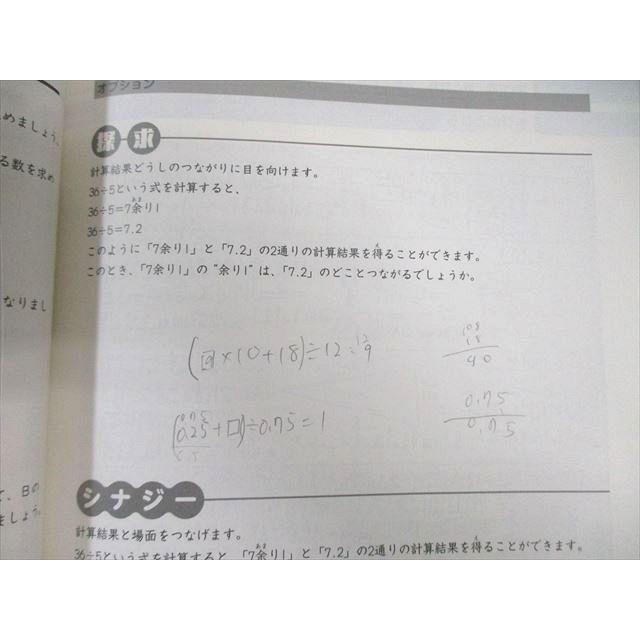 オプション
めましょう、
る数を求め
なりまし
て、日の
ましょう。
探求
計算結果どうしのつながりに目を向けます。
36÷5という式を計算すると、
36÷5=7余り1
36÷5=7.2
このように「7余り1」と「7.2」の2通りの計算結果を得ることができます。
このとき、「7余り1」の“余り1”は、「7.2」のどことつながるでしょうか。
×10+18)÷12
108
18
90
+□)÷0.75=1
0.75
0.75
シナジー
計算結果と場面をつなげます。
36÷5という式を計算すると、「7余り1」と「7.2」の2通りの計算結果を得ることができます。